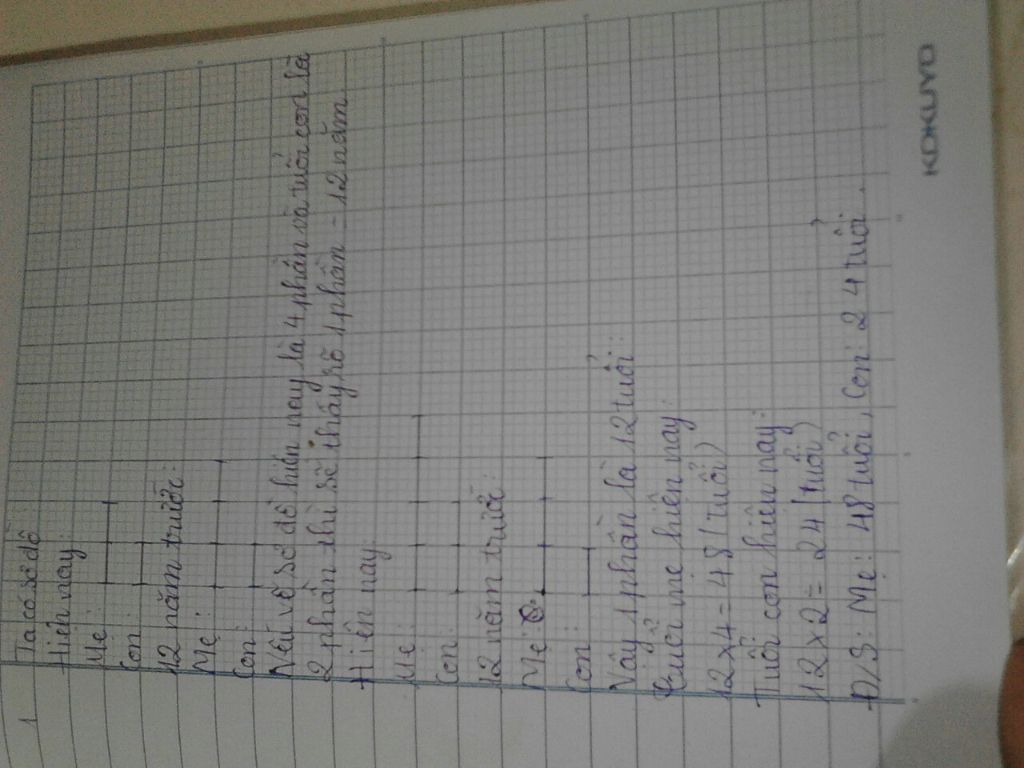 1
Ta có sơ đồ:
Hiện nay:
Mẹ:
Con:
12 năm trước:
Mẹ:
Con:
Nếu vẽ sơ đồ hiện nay là 4 phần và tuổi con là
2 phần thì sẽ thấy rõ 1 phần = 12 năm
Hiện nay:
Mẹ:
Con:
12 năm trước:
Mẹ:
Con:
Vậy 1 phần là 12 tuổi:
Tuổi mẹ hiện nay:
12 x 4 = 48 (tuổi)
Tuổi con hiện nay:
12 x 2 = 24 (tuổi)
Đ/S: Mẹ: 48 tuổi, Con: 24 tuổi.
KOKUYO